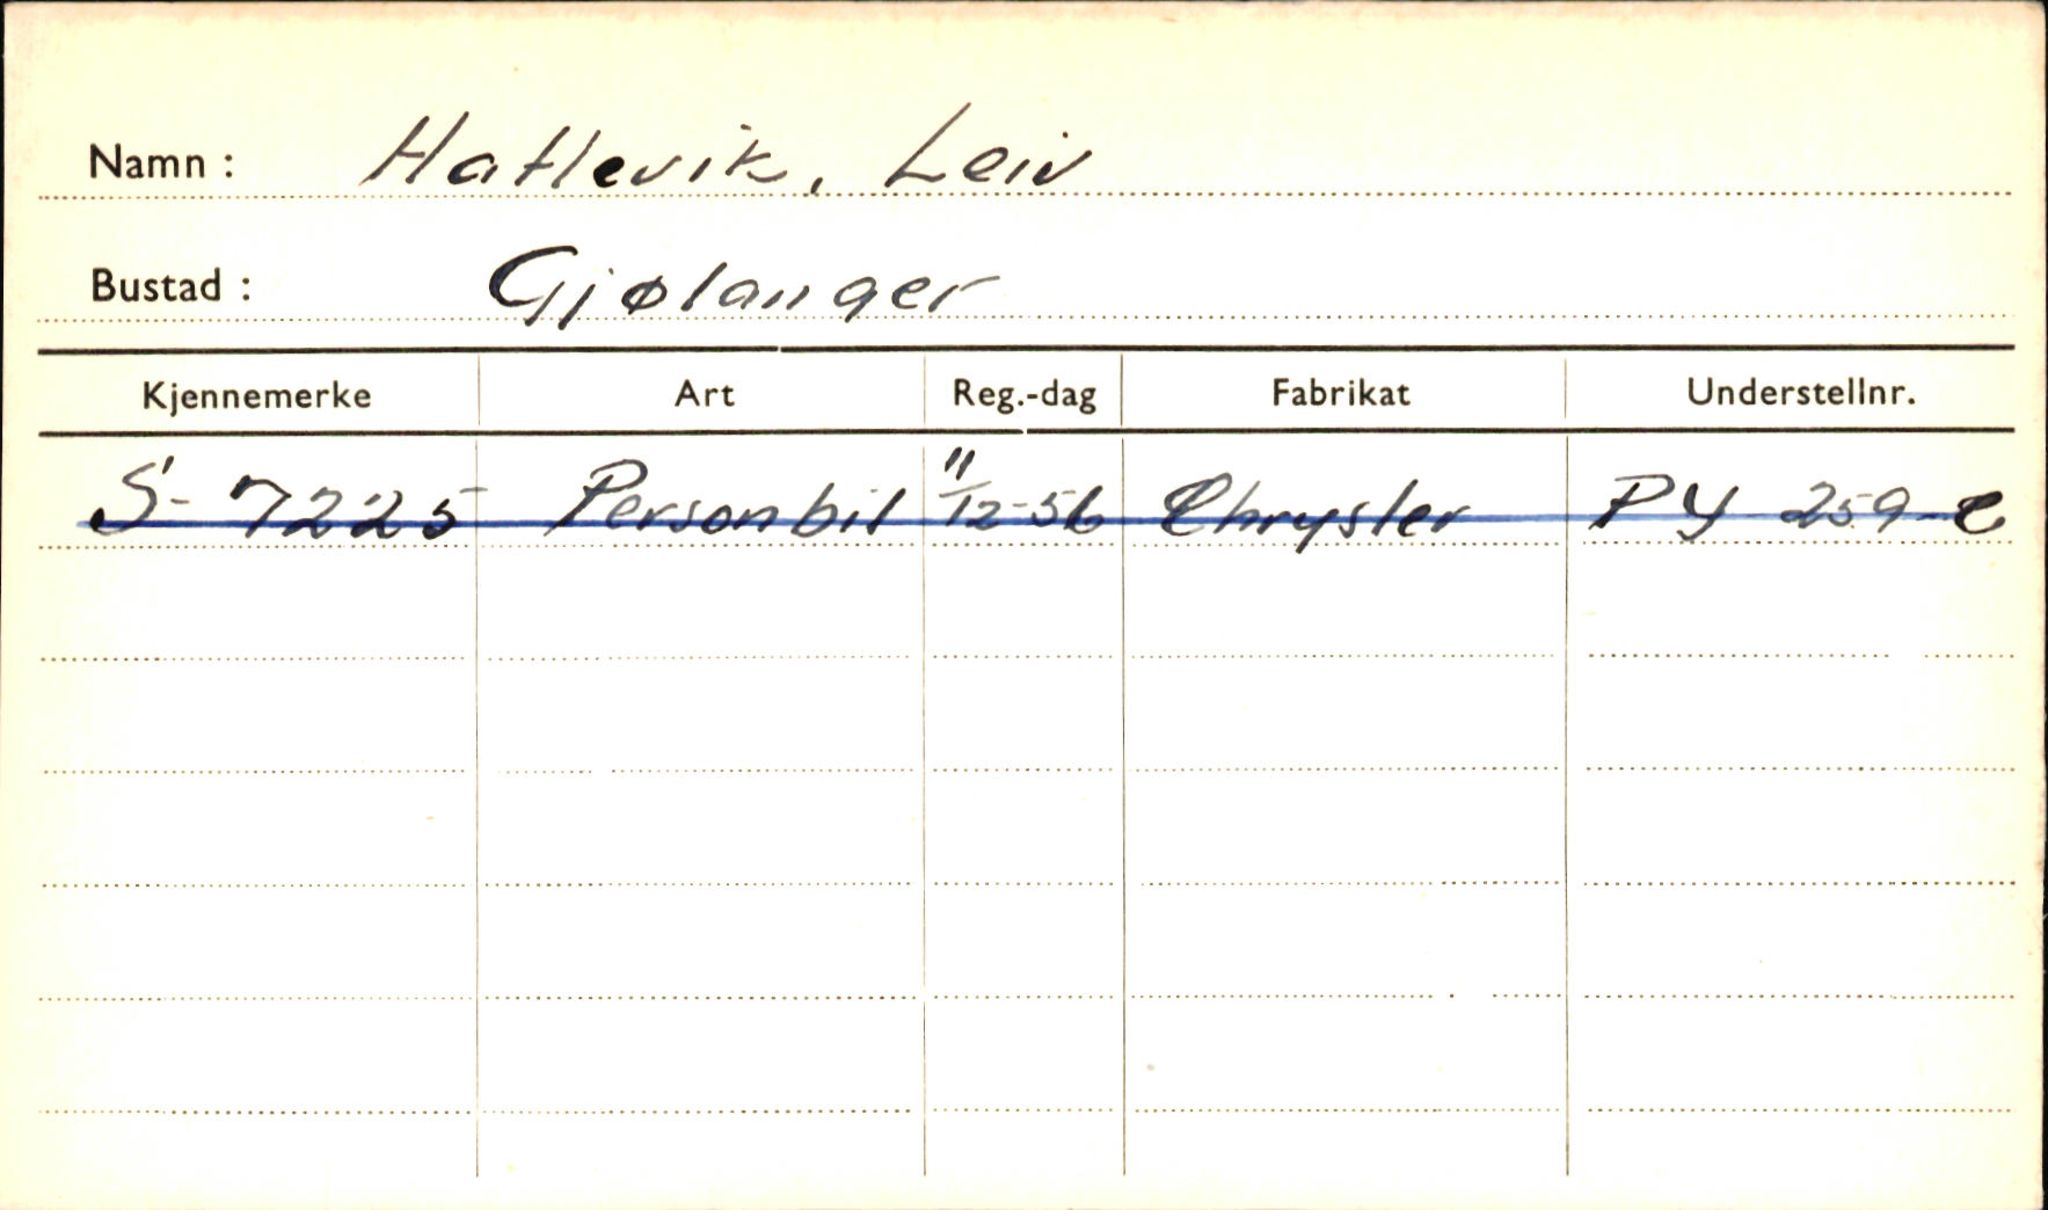 Namn : Hatlevik, Leiv
Bustad : Gjølanger
Kjennemerke Art Reg.-dag Fabrikat Understellnr.
S- 7225 Personbil 11/12-56 Chrysler PY 259-C